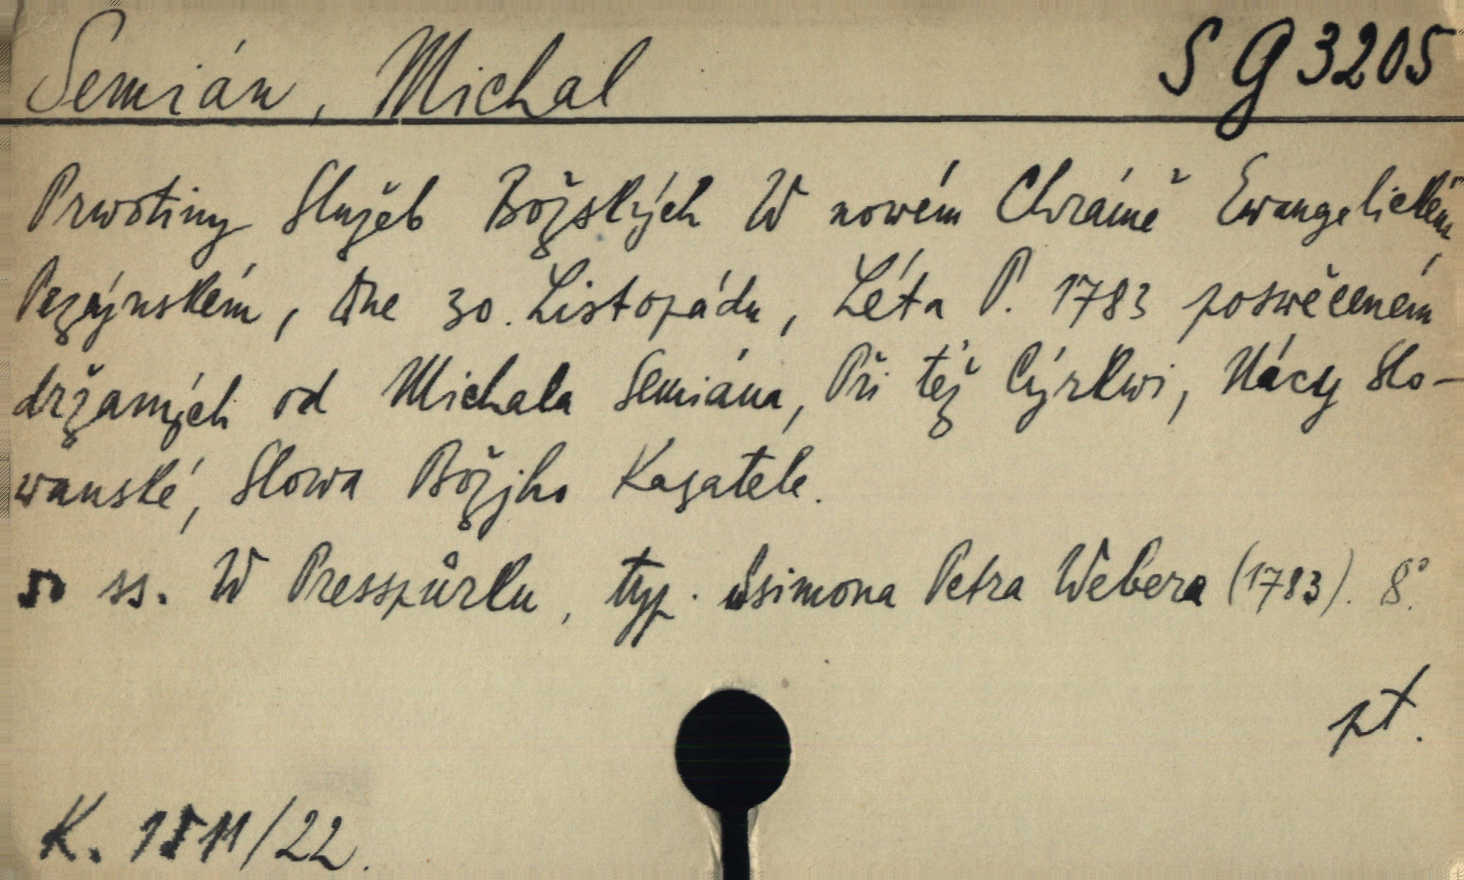 Semián, Michal
S G 3205
Prwotiny Služeb Božských W nowém Chrámě Ewangelickém
Pezýnském, dne 30. Listopádu, Léta P. 1783 poswěceném
držaných od Michala Semiána, Při též Cýrkwi, Nácy Slo-
wanské, Slowa Božjho Kazatele.
50 ss. W Presspůrku, typ. Ssimona Petra Webera (1783). 8°.
pt.
K. 1511/22.